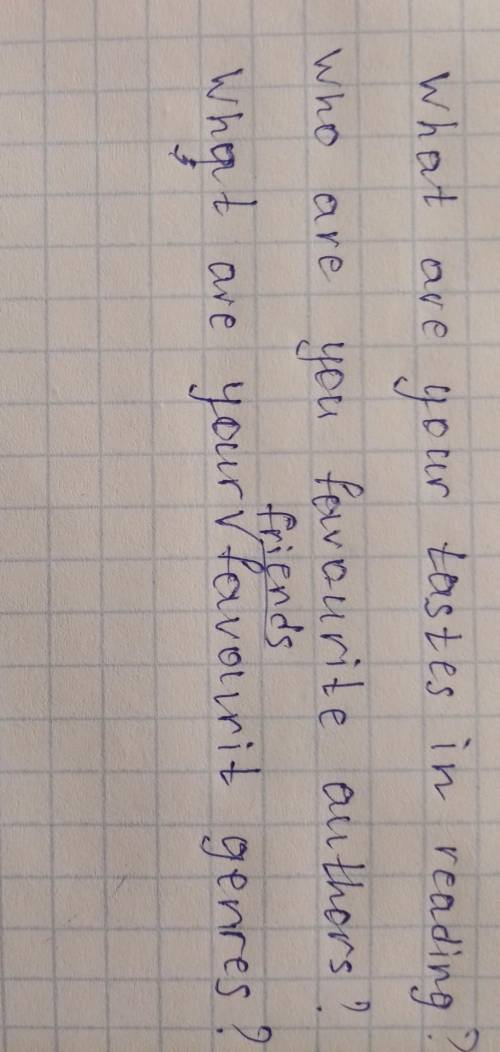 What are your tastes in reading?
Who are you favourite authors?
friends
What are your√favourit genres?